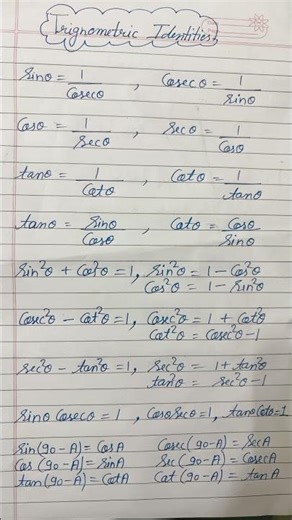 Trignometric Identities
sinθ = 1/Cosecθ , Cosecθ = 1/sinθ
Cosθ = 1/Secθ , Secθ = 1/Cosθ
tanθ = 1/Cotθ , Cotθ = 1/tanθ
tanθ = Sinθ/Cosθ , Cotθ = Cosθ/Sinθ
Sin²θ + Cos²θ = 1, Sin²θ = 1 - Cos²θ
Cos²θ = 1 - Sin²θ
Cosec²θ - Cot²θ = 1, Cosec²θ = 1 + Cot²θ
Cot²θ = Cosec²θ - 1
Sec²θ - tan²θ = 1, Sec²θ = 1 + tan²θ
tan²θ = Sec²θ - 1
Sinθ Cosecθ = 1 , CosθSecθ = 1, tanθCotθ = 1
Sin(90-A) = CosA Cosec(90-A) = SecA
Cos(90-A) = SinA Sec(90-A) = CosecA
tan(90-A) = CotA Cot(90-A) = tanA